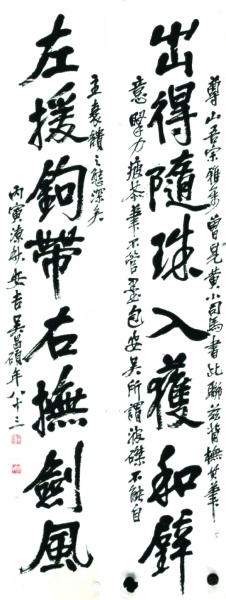 尊山吾宗雅属曾見黃小司馬書此聯茲背撫其筆
出得隨珠入獲和璧
意臂力疲苶筆不管墨包安吳所謂波磔不能自
主衰穨之態深矣
左援鉤帶右撫劍風
丙寅涼秋安吉吳昌碩年八十三